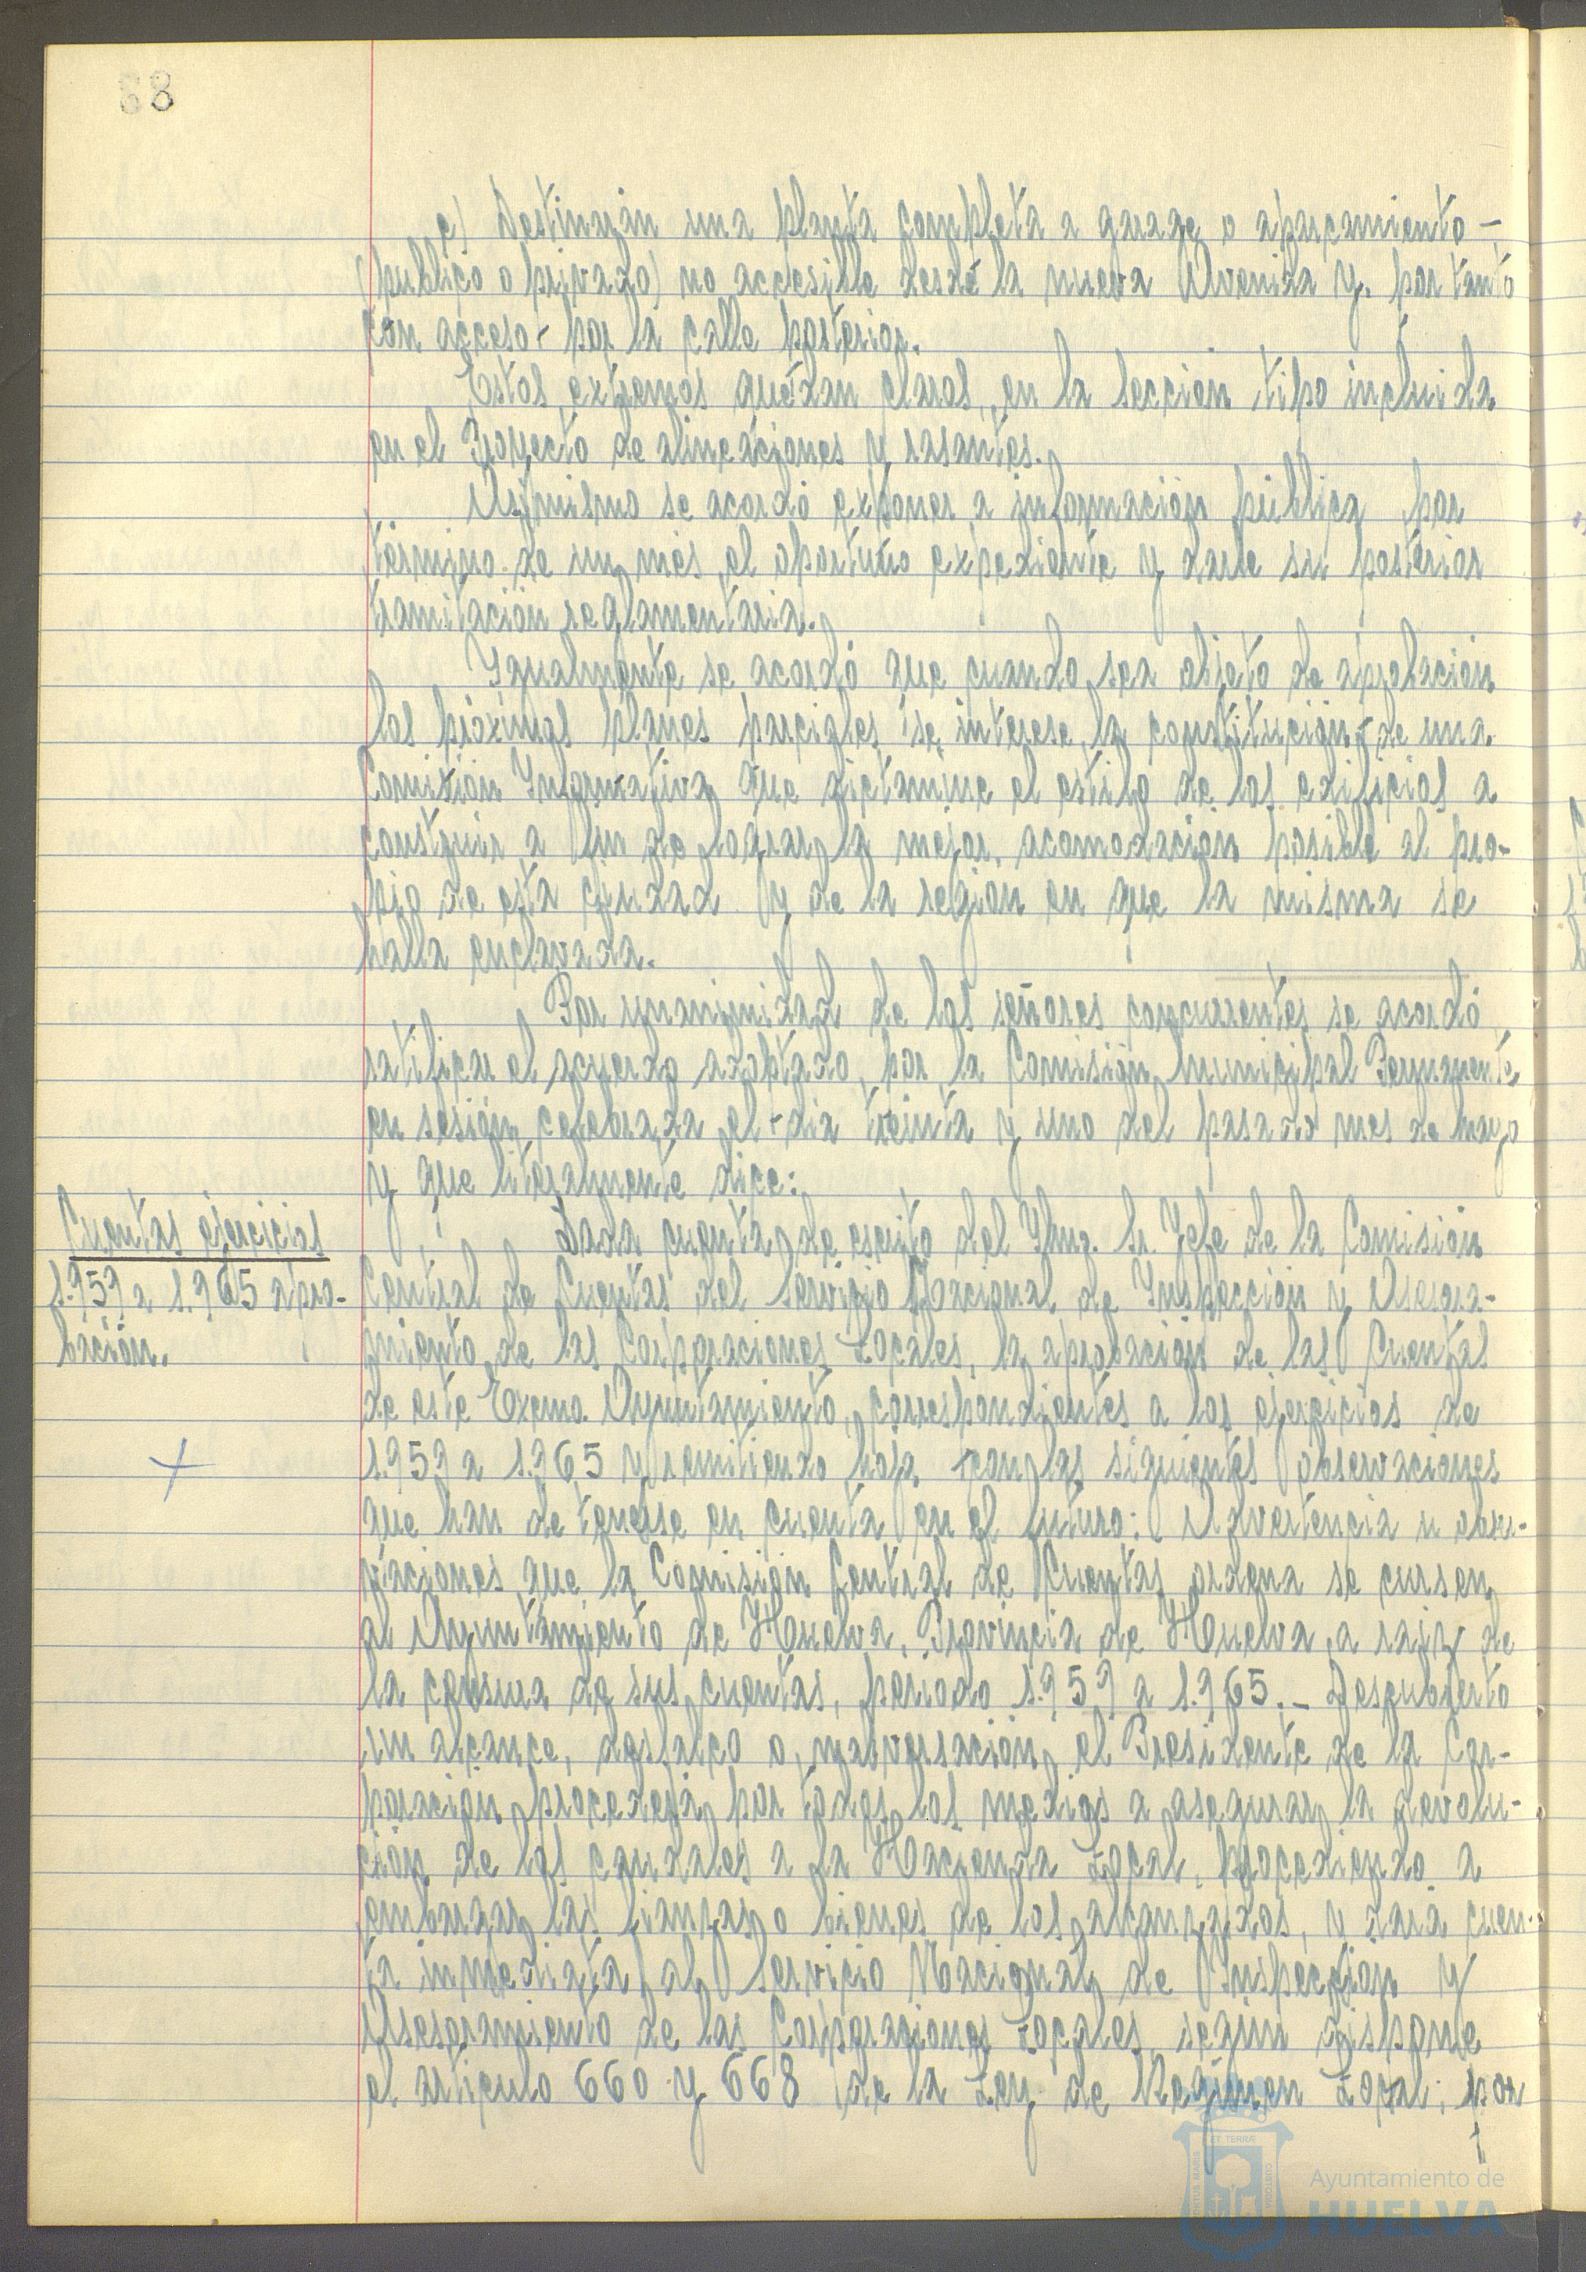 68
c) Destinarán una planta completa a garage o aparcamiento -
(publico o privado) no accesible desde la nueva Avenida y, por tanto
con acceso - por la calle posterior.
Estos extremos quedan claros, en la sección tipo incluida
en el Proyecto de alineaciones y rasantes.
Asimismo se acordó exponer a información pública por
término de un mes, el oportuno expediente y darle su posterior
tramitación reglamentaria.
Igualmente se acordó que cuando sea objeto de aprobación
los próximos planes parciales se interese la constitución de una
Comisión Informativa que dictamine el estilo de los edificios a
construir a fin de lograr la mejor acomodación posible al pro-
pio de esta ciudad y de la región en que la misma se
halla enclavada.
Por unanimidad de los señores concurrentes se acordó
ratificar el acuerdo adoptado, por la Comisión Municipal Permanente
en sesión celebrada el día treinta y uno del pasado mes de mayo
y que literalmente dice:
Cuentas ejercicios
1.959 a 1.965 apro-
bación.
Dada cuenta, de escrito del Iltmo. Sr. Jefe de la Comisión
Central de Cuentas del Servicio Nacional de Inspección y Asesora-
miento de las Corporaciones Locales, la aprobación de las Cuentas
de este Excmo. Ayuntamiento, correspondientes a los ejercicios de
1.959 a 1.965 y remitiendo hoja con las siguientes observaciones
que han de tenerse en cuenta en el futuro: Advertencia u obser-
vaciones que la Comisión Central de Cuentas ordena se cursen
al Ayuntamiento de Huelva, Provincia de Huelva, a raiz de
la censura de sus cuentas, periodo 1.959 a 1.965.- Descubierto
un alcance, desfalco o malversación, el Presidente de la Cor-
poración procederá por todos los medios a asegurar la devolu-
ción de los caudales a la Hacienda Local, procediendo a
embargar las fianzas o bienes de los alcanzados, y dará cuen-
ta inmediata al Servicio Nacional de Inspección y
Asesoramiento de las Corporaciones Locales, según dispone
el artículo 660 y 668 de la Ley de Régimen Local; por
Ayuntamiento de
HUELVA